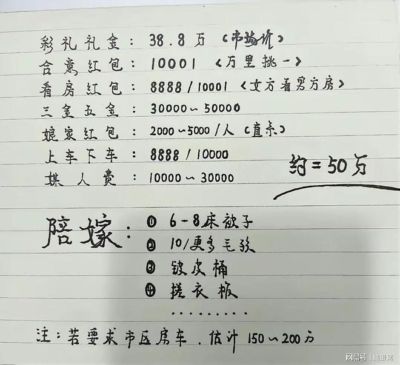 彩礼礼金：38.8万（市场价）
合意红包：10001（万里挑一）
看房红包：8888/10001（女方看男方房）
三金五金：30000～50000
娘家红包：2000～5000/人（直亲）
上车下车：8888/10000
媒人费：10000～30000
约=50万
陪嫁：
① 6-8床被子
② 10/更多毛毯
③ 铁皮桶
④ 搓衣板
………
注：若要求市区房车，估计150～200万